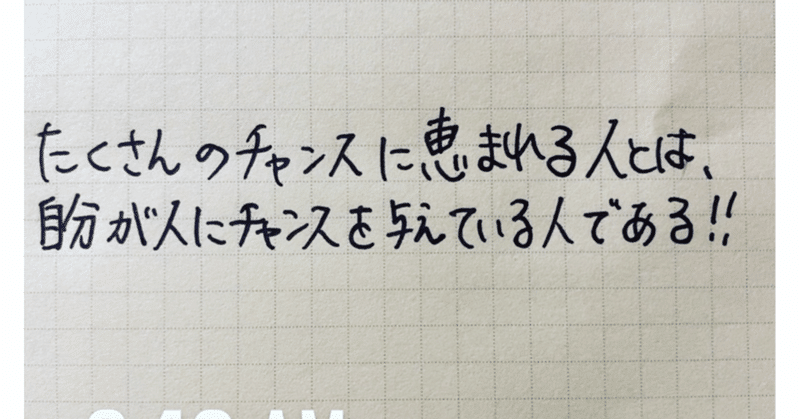 たくさんのチャンスに恵まれる人とは、
自分が人にチャンスを与えている人である!!